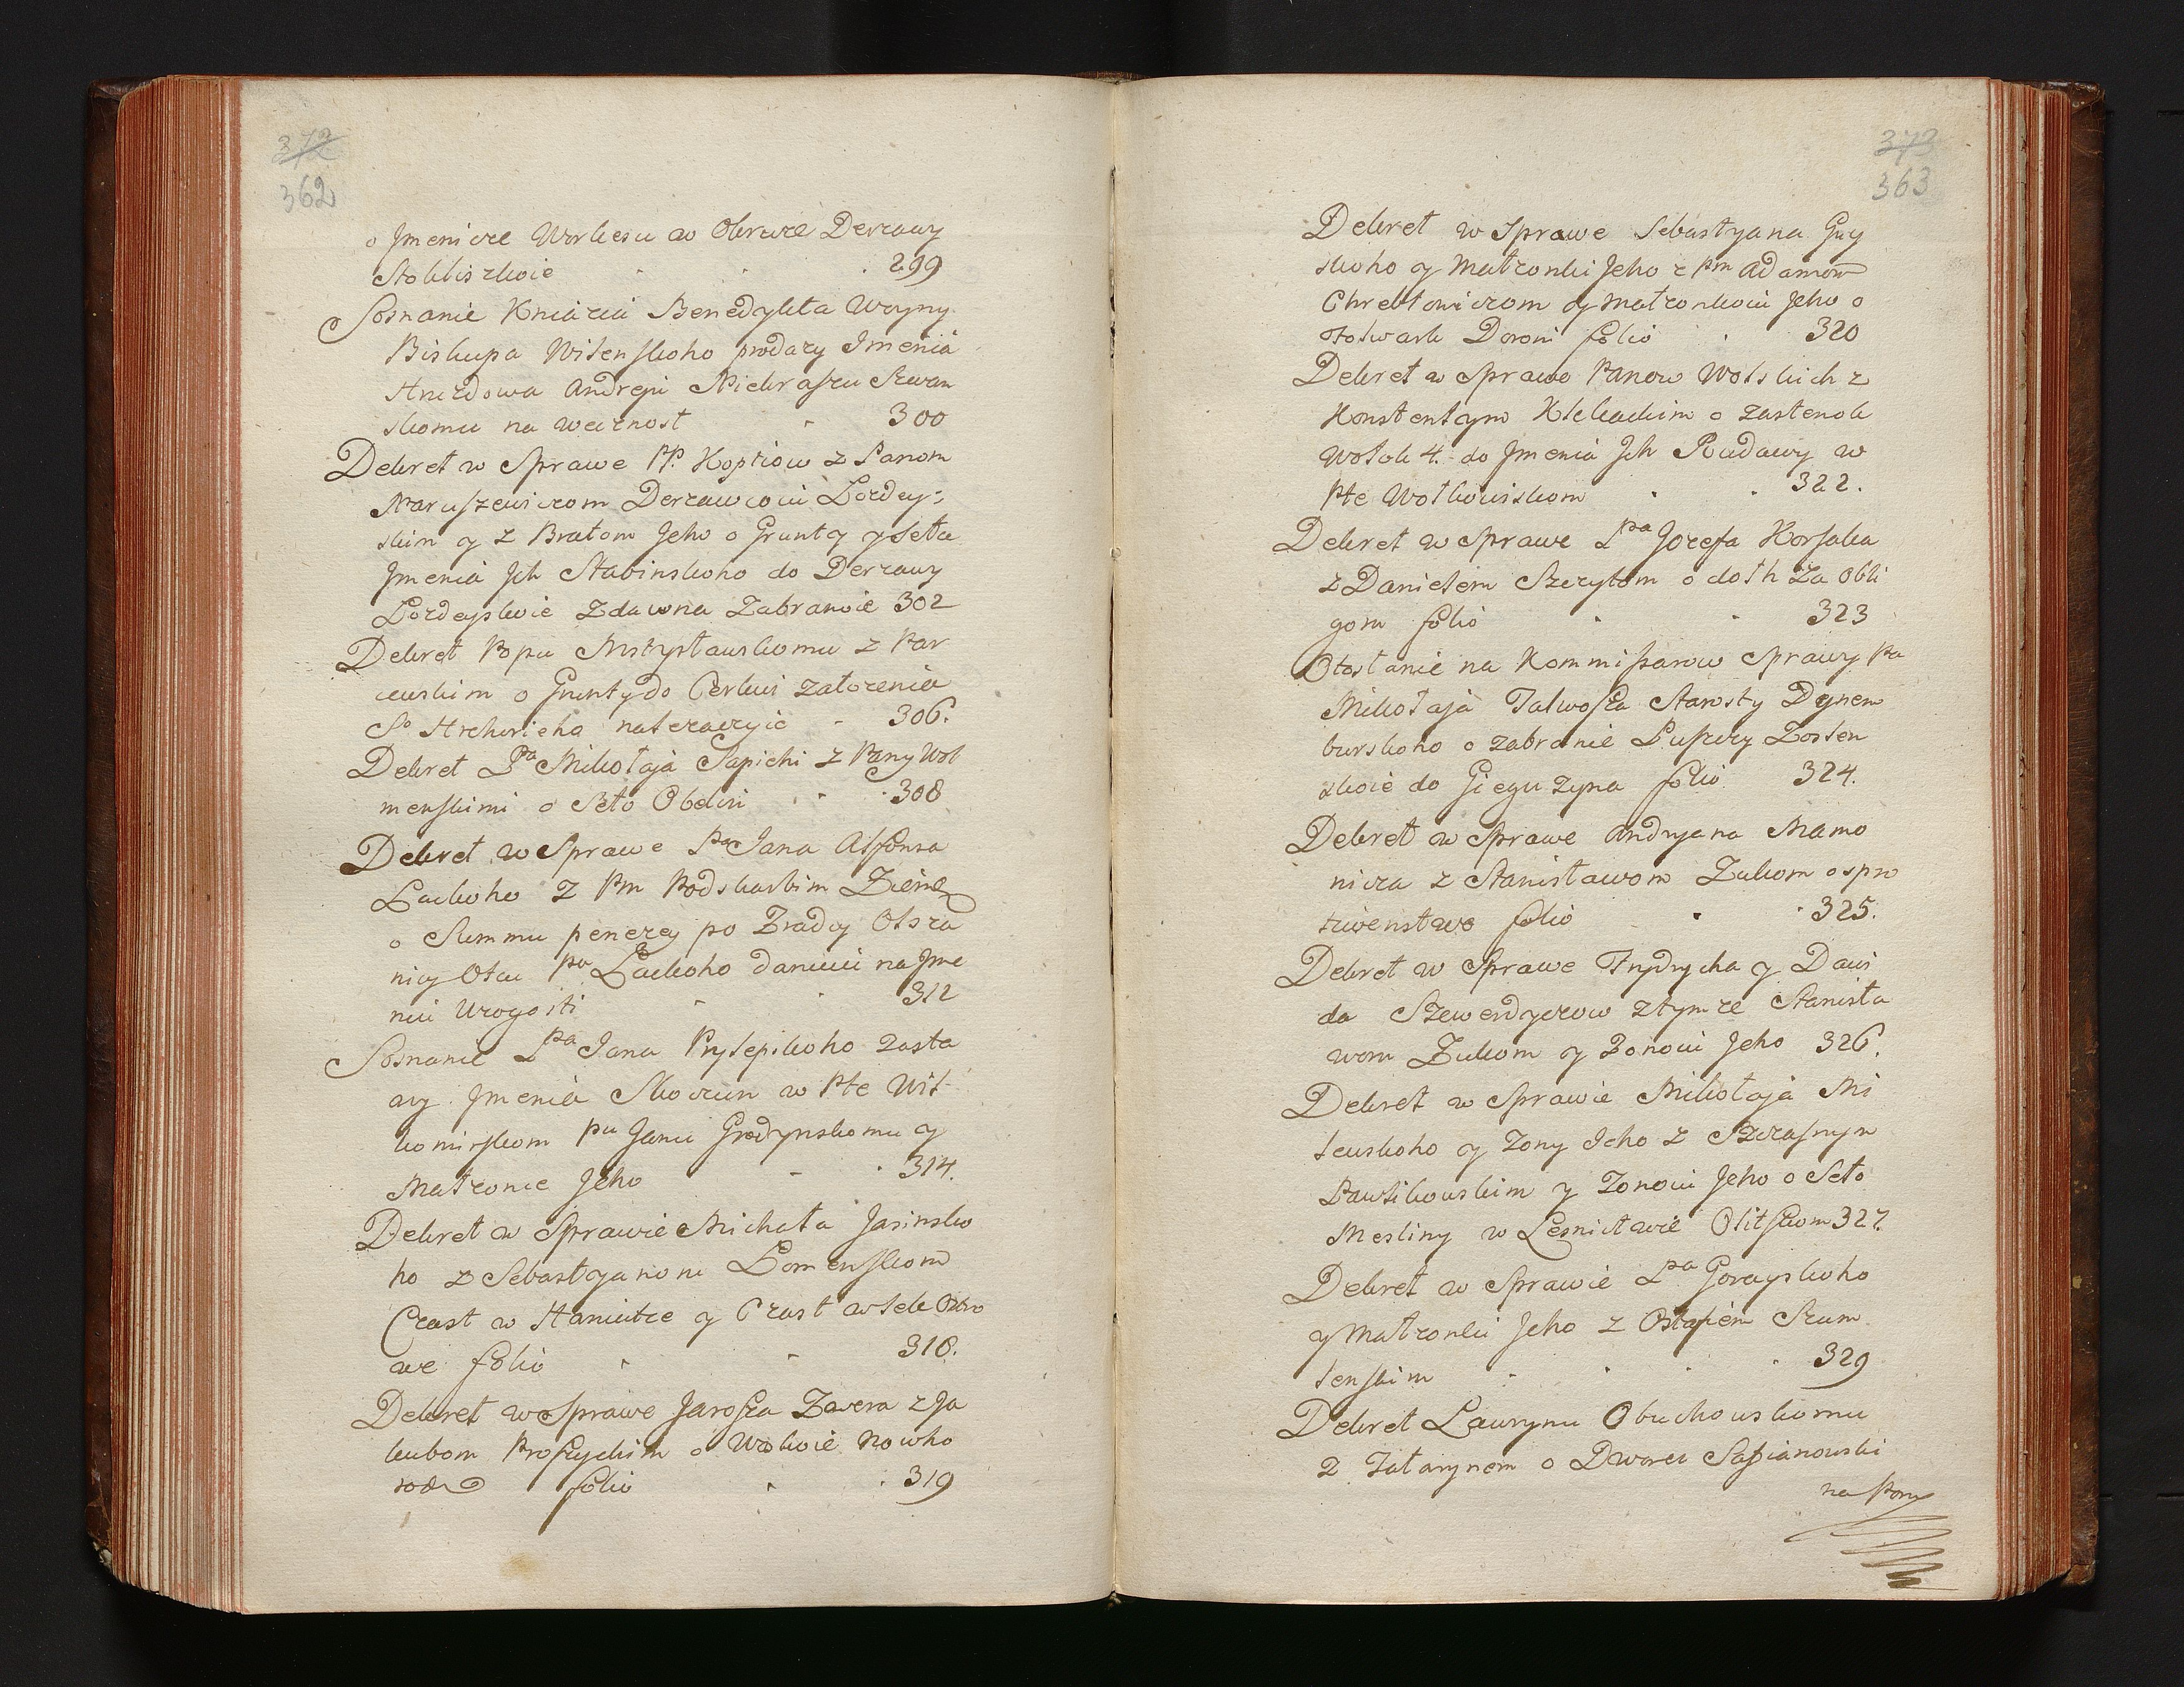 372
362
o Jmenicze Worlesu w Okruze Derzawy
Stokliszkoie 299
Sosnanie Kniazia Benedykta Woyny
Biskupa Wilenskoho prodazy Jmenia
Hnezdowa Andreju Niekraszu Szwan
skomu na wecznost 300
Dekret w Sprawe PP. Kopciow z Panom
Naruszewiczom Derzawcoiu Lozdey:
skim y z Bratom Jeho o Grunty y Seła
Jmenia Jch Stabinskoho do Derzawy
Lozdeyskoie Zdawna Zabranoie 302
Dekret Popu Mstysławskomu z Par
cewskim o Grunty do Cerkwi założenia
So Archirieha należaczyie 306.
Dekret Pa Mikołaja Sapichi z Pany Woł
menskimi o Seło Obelci 308
Dekret w Sprawe Pa Jana Alfonsa
Lackoho z Pm Podskarbim Ziem
o Summu penezey po Zradcy Ossza
nicy Otcu Pa Lackoho daniuiu na Jme
niu Urogosti 312
Sosnanie Pa Jana Pryłepskoho zasta
wy Jmenia Skoczun w Pte Wił
komirskom Pu Janu Gredzynskomu y
Małzonce Jeho 314.
Dekret w Sprawie Michała Jasinsko
ho z Sebastyanom Lomenskom
Czast w Haniutce y Czast w Sele Ostro
we folio 318.
Dekret w Sprawe Jarosza Zwera z Ja
kubom Proszyckim o Wołoie Nowho
rode folio 319
373
363
Dekret w Sprawe Sebastyana Guy
skoho y Małzonki Jeho z Pm Adamom
Chrebtowiczom y małzonkoiu Jeho o
Folwark Doroni folio 320
Dekret w Sprawe Panow Wolskich z
Konstentym Klekackim o zastenok
Wołok 4. do Jmenia Jch Rudawy w
Pte Wołkowiskom 322.
Dekret w Sprawe Pa Jozefa Korsaka
z Daniełem Szczytom o dołh Za Obli
gom folio 323
Otosłanie na Kommissarow Sprawy Pa
Mikołaja Talwosza Starosty Dynem
burskoho o zabranie Puszczy Zosłen
skoie do Gieguzyna folio 324.
Dekret w Sprawe Andryana Mamo
nicza z Stanisławom Zukom o spro
tiwenstwo folio 325.
Dekret w Sprawe Frydrycha y Dawi
da Szewerdyczow z tymze Stanisła
wom Zukom y Zonoiu Jeho 326.
Dekret w Sprawie Mikołaja Mi
lewskoho y Zony Jeho z Szczasnym
Pawlikowskim y Zonoiu Jeho o Seło
Mesliny w Lesnictwie Olitskom 327.
Dekret w Sprawie Pa Gorayskoho
y Małzonki Jeho z Ostafiem Szum
lenskim 329
Dekret Lawrynu Obuchowskomu
z Tatarynem o Dworec Safianowski
na Pom